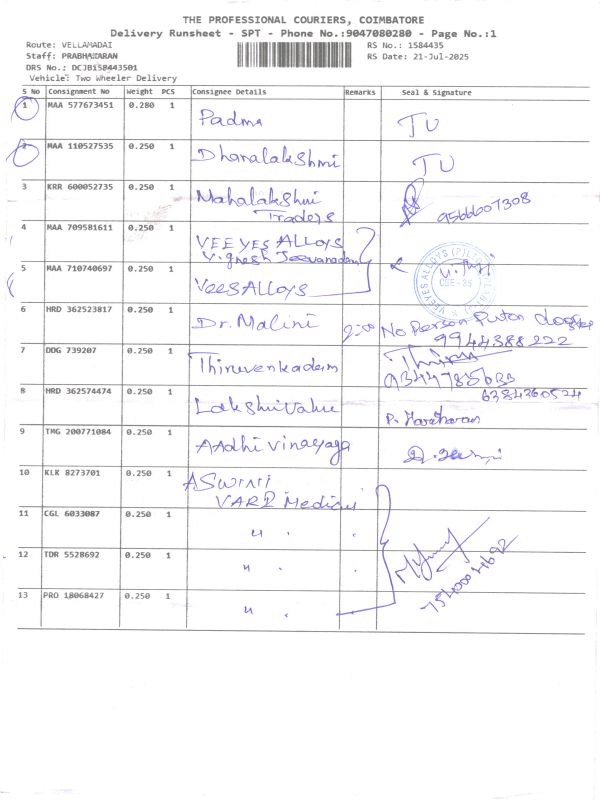 THE PROFESSIONAL COURIERS, COIMBATORE
Delivery Runsheet - SPT - Phone No.:9047080280 - Page No.:1
Route: VELLAMADAI RS No.: 1584435
Staff: PRABHAKARAN RS Date: 21-Jul-2025
DRS No.: DCJB158443501
Vehicle: Two Wheeler Delivery
S No Consignment No Weight PCS Consignee Details Remarks Seal & Signature
1 MAA 577673451 0.280 1 Padma TU
2 MAA 110527535 0.250 1 Dhanalakshmi TU
3 KRR 600052735 0.250 1 Mahalakshmi
Traders 9566607308
4 MAA 709581611 0.250 1 VEEYES ALLOYS
Vignesh Jeevanadam
5 MAA 710740697 0.250 1 Vees Alloys
VEEYES ALLOYS (P) LTD
CBE-35
6 HRD 362523817 0.250 1 Dr. Malini No Person Put on doorstep
9944388222
7 DDG 739207 0.250 1 Thiruvenkadam Thiru
8 HRD 362574474 0.250 1 6384360524
P. Hariharan
9 TMG 200771084 0.250 1 Aadhi Vinayaga
10 KLK 8273701 0.250 1 ASwini
VARI Medical
11 CGL 6033087 0.250 1 " "
12 TDR 5528692 0.250 1 " "
13 PRO 18068427 0.250 1 " "